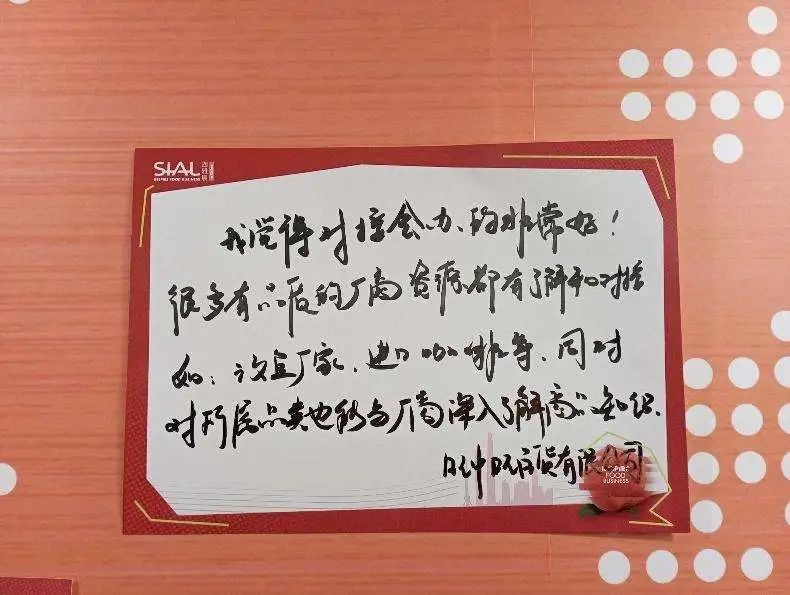 SIAL 西雅展
INSPIRE FOOD BUSINESS
我觉得对接会办的非常好!
很多有品质的厂商资源都有了解和对接
如:汝豆厂家、进口咖啡等.同时
对所属品类也能与厂商深入了解商品知识.
百货有限公司
INSPIRE
FOOD
BUSINESS